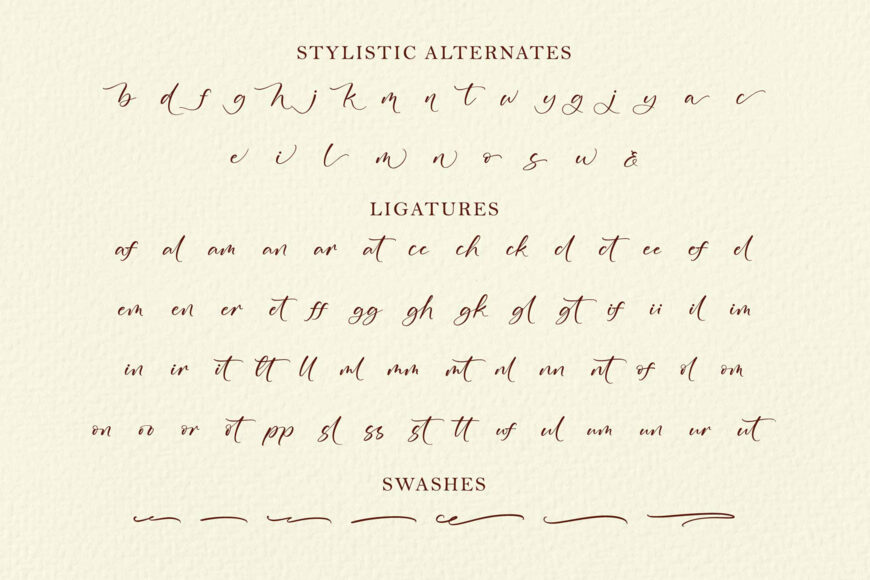 STYLISTIC ALTERNATES
b d f g h j k m n t w y g j y a c
e i l m n o s w &
LIGATURES
af al am an ar at cc ch ck cl ct ee ef el
em en er et ff gg gh gk gl gt if ii il im
in ir it lt ll ml mm mt nl nn nt of ol om
on oo or ot pp sl ss st tt uf ul um un ur ut
SWASHES